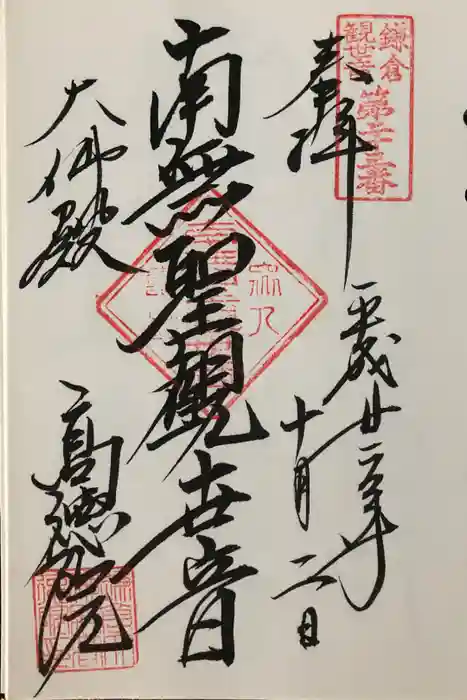 鎌倉
観世音
第二十三番
奉拝
平成廿二年
十月二日
南無聖観世音
大佛殿
高徳院